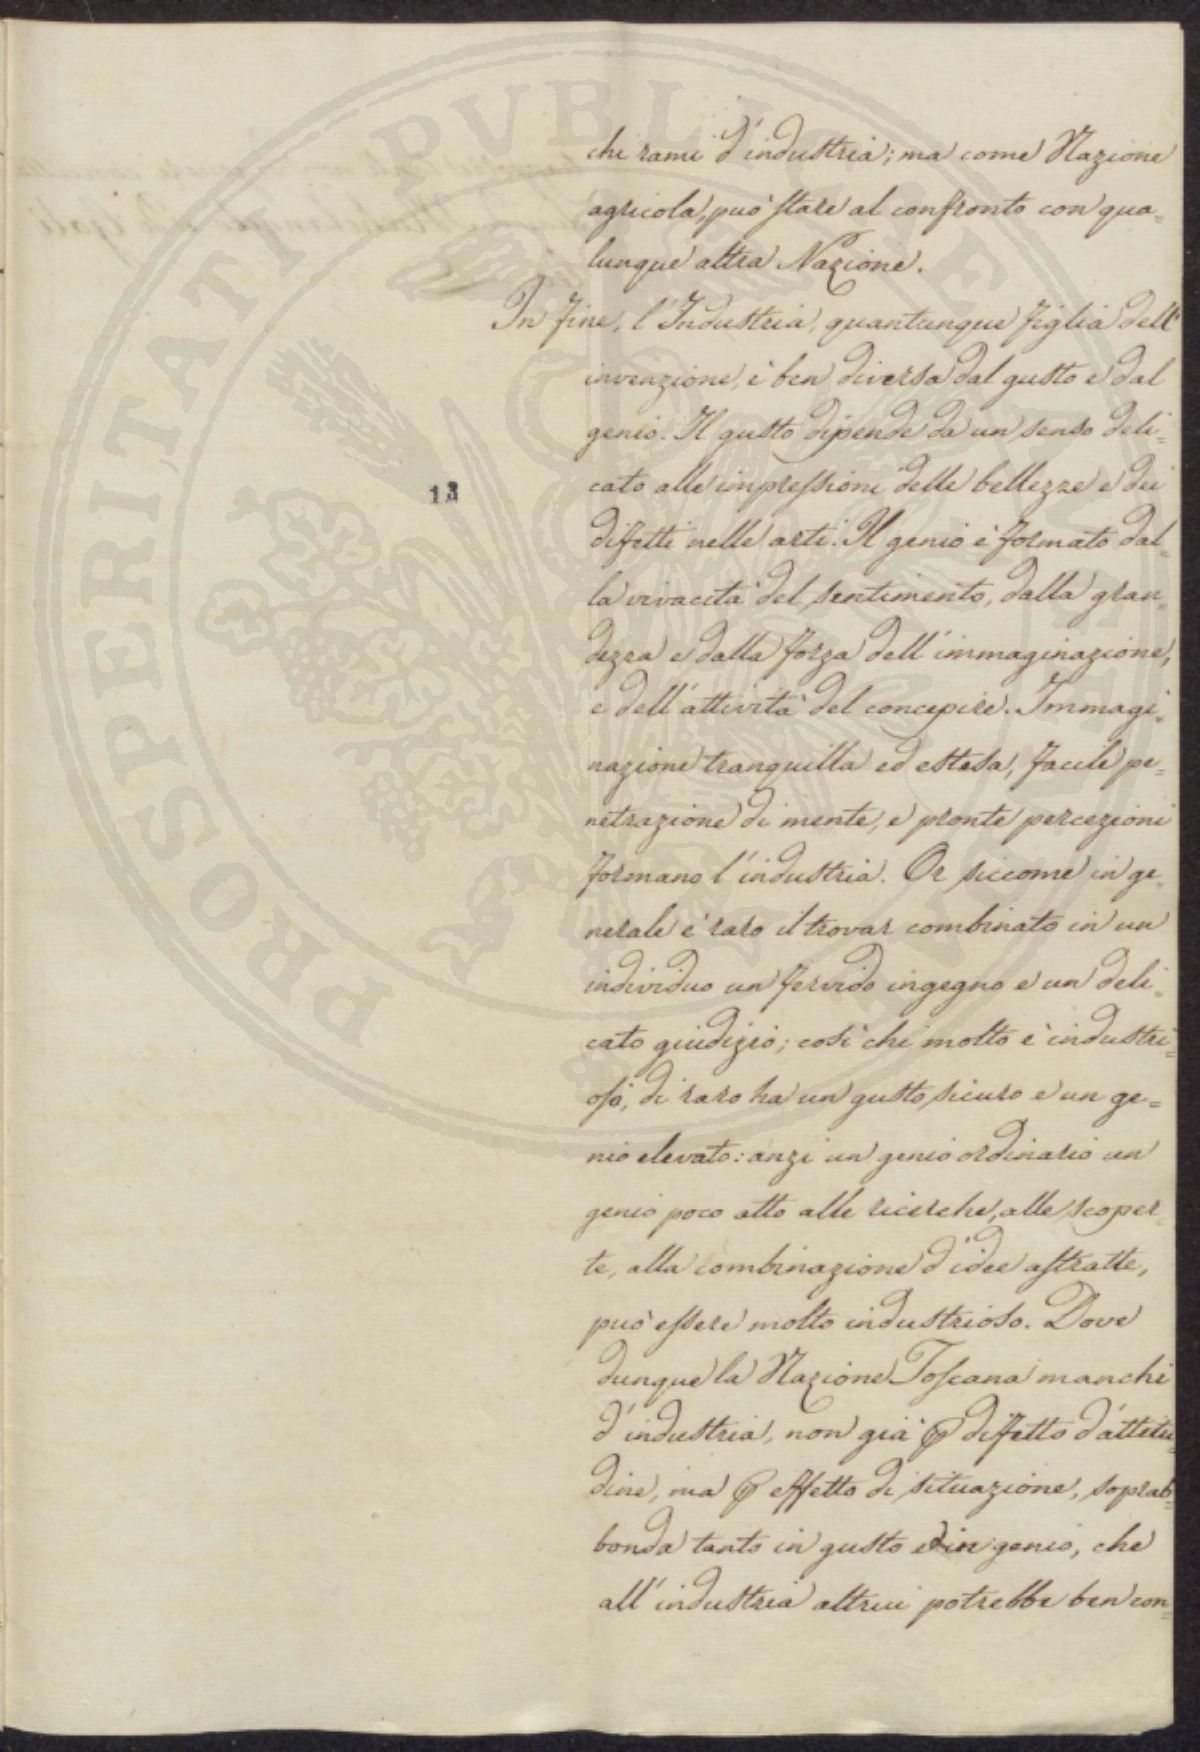 chi rami d'industria; ma come Nazione
agricola, può stare al confronto con qua=
lunque altra Nazione.
In fine, l'Industria, quantunque figlia dell'
invenzione, è ben diversa dal gusto e dal
genio. Il gusto dipende da un senso deli=
cato alle impressioni delle bellezze e dei
13
difetti nelle arti. Il genio è formato dal=
la vivacità del sentimento, dalla gran=
dezza e dalla forza dell'immaginazione,
e dell'attività del concepire. Immagi=
nazione tranquilla ed estesa, facile pe=
netrazione di mente, e pronte percezioni
formano l'industria. Or siccome in ge=
nerale è raro il trovar combinato in un
individuo un fervido ingegno e un deli=
cato giudizio; così chi molto è industri=
oso, di raro ha un gusto sicuro e un ge=
nio elevato: anzi un genio ordinario un
genio poco atto alle ricerche, alle scoper=
te, alla combinazione d'idee astratte,
può essere molto industrioso. Dove
dunque la Nazione Toscana manchi
d'industria, non già p diffetto d'attitu=
dine, ma p effetto di situazione, soprab=
bonda tanto in gusto ed in genio, che
all'industria altrui potrebbe ben con=
PROSPERITATI PUBLICAE